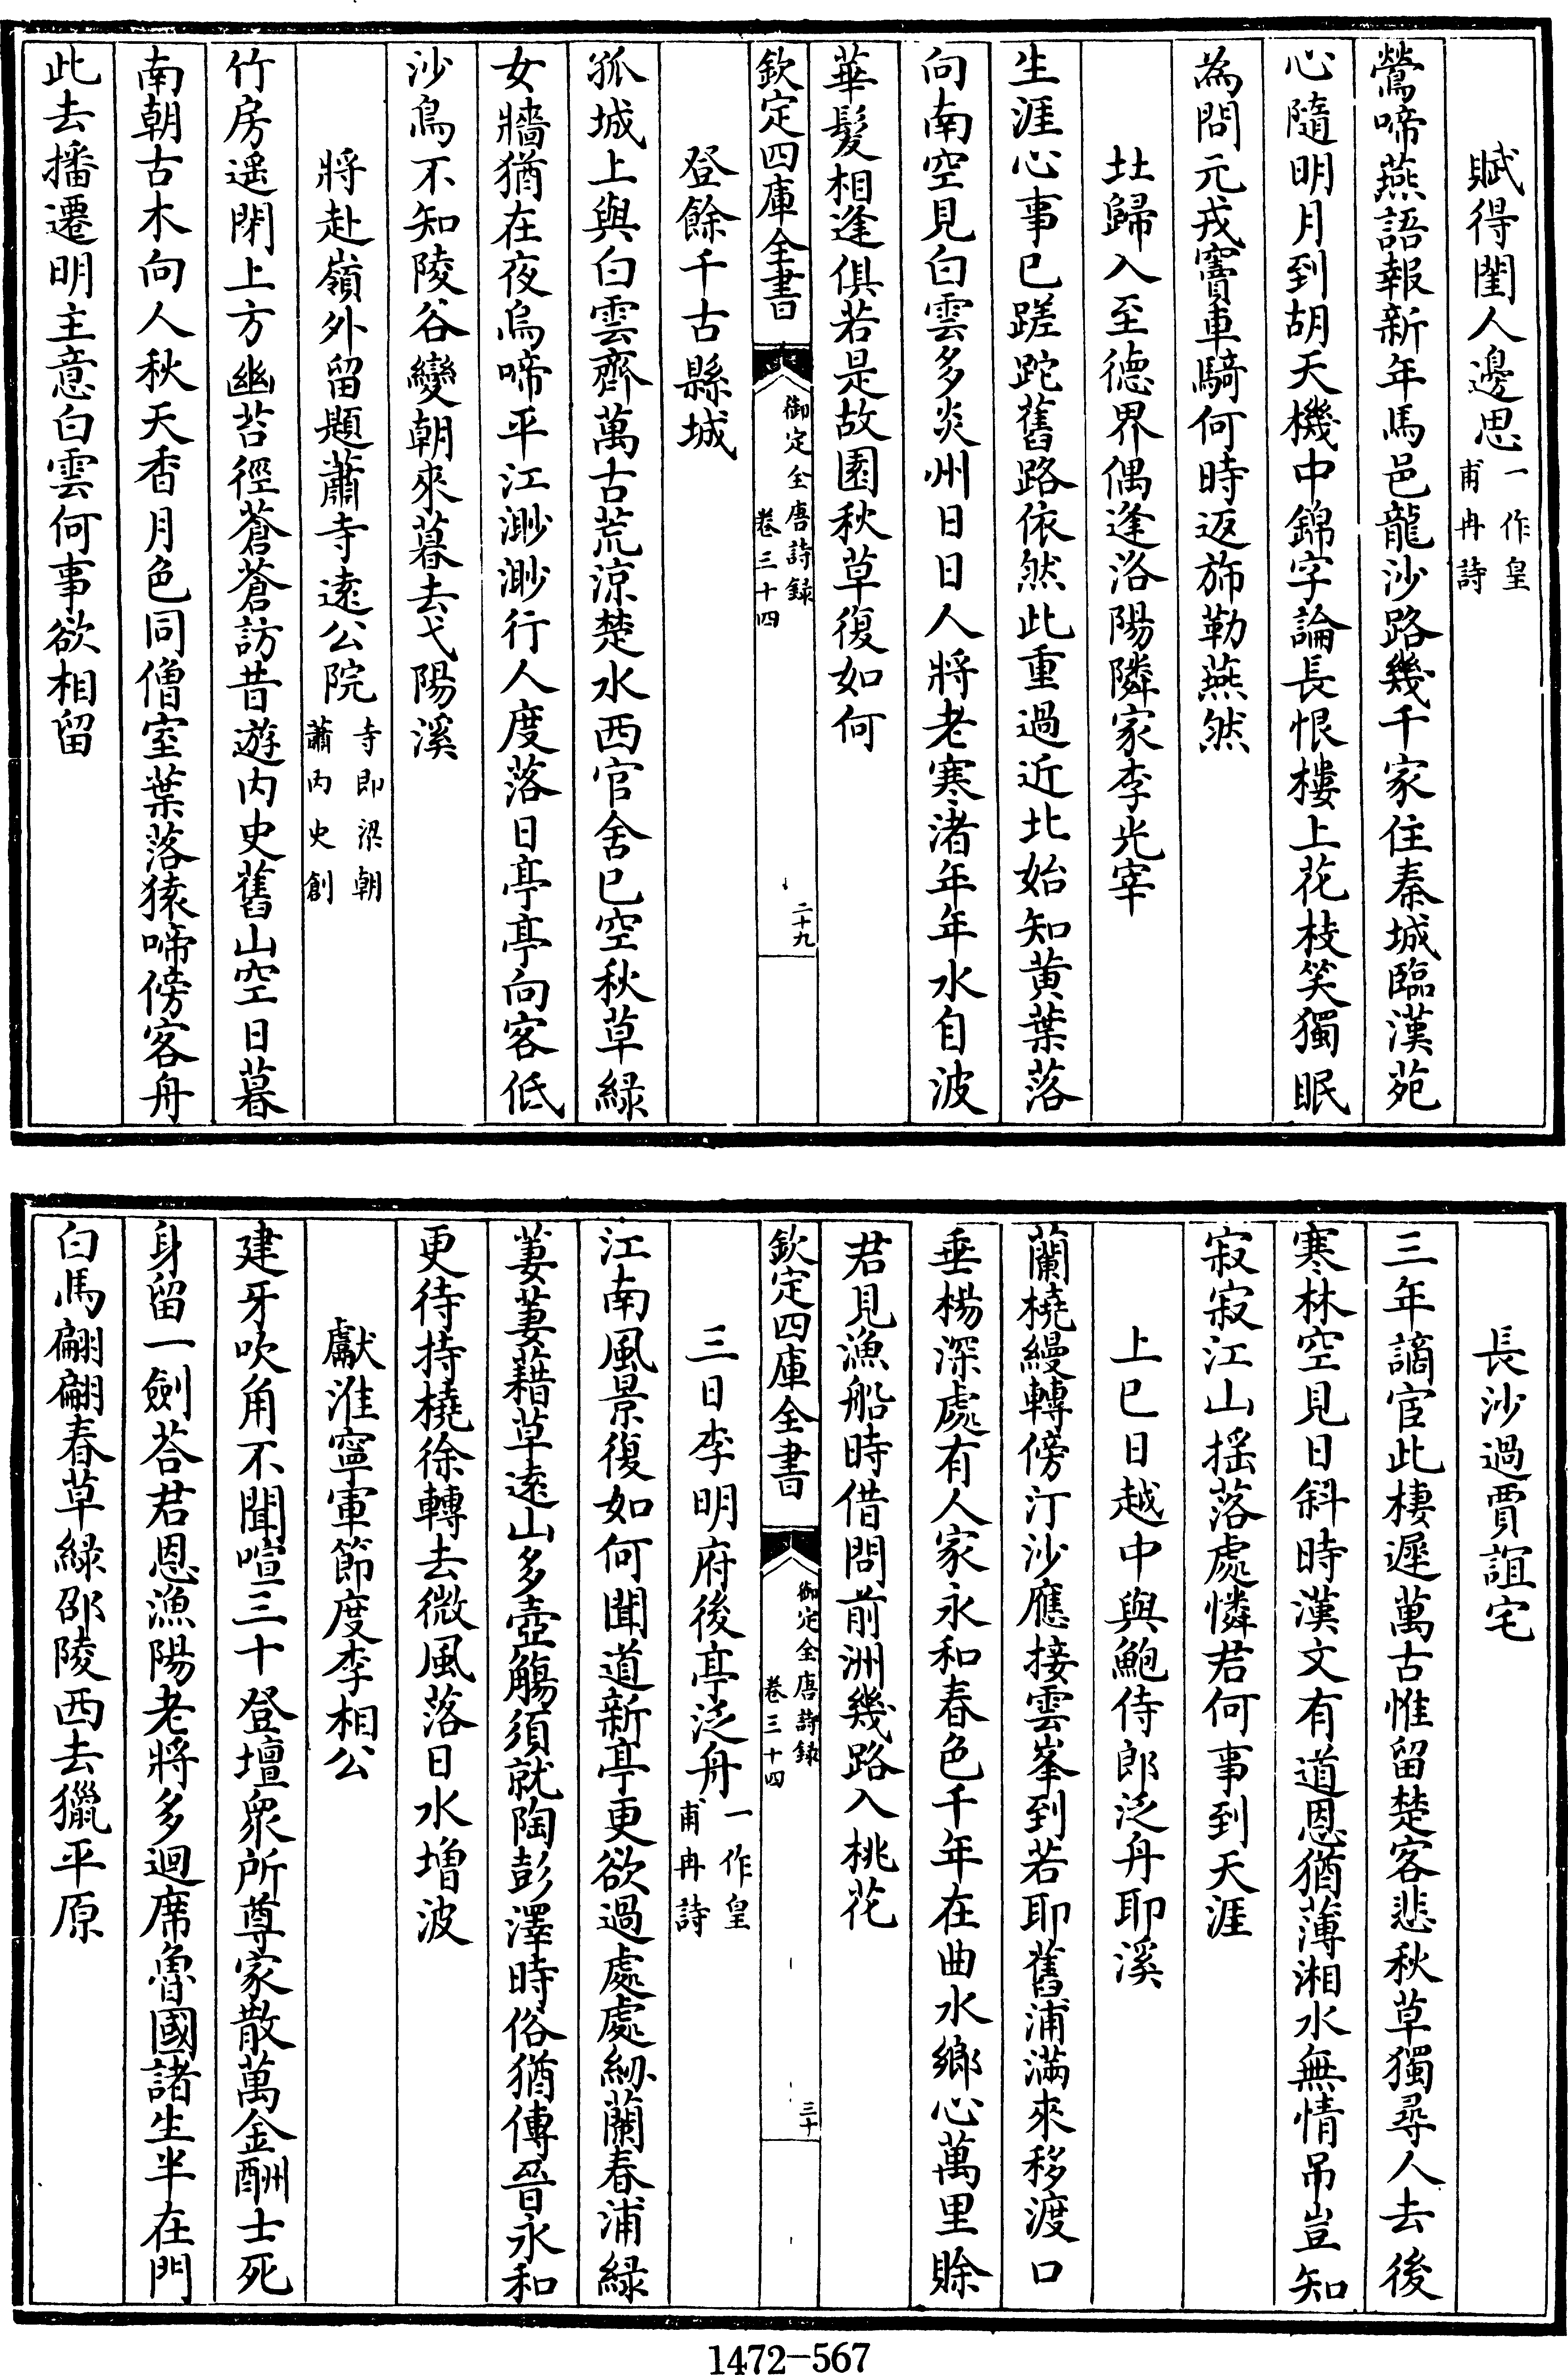 賦得閨人邊思一作皇甫冉詩
鶯啼燕語報新年馬邑龍沙路幾千家住秦城臨漢苑
心隨明月到胡天機中錦字論長恨樓上花枝笑獨眠
為問元戎竇車騎何時返斾勒燕然
北歸入至德界偶逢洛陽隣家李光宰
生涯心事已蹉跎舊路依然此重過近北始知黄葉落
向南空見白雲多炎州日日人將老寒渚年年水自波
華髮相逢俱若是故園秋草復如何
欽定四庫全書 御定全唐詩録 卷三十四 二十九
登餘干古縣城
孤城上與白雲齊萬古荒涼楚水西官舍已空秋草緑
女牆猶在夜烏啼平江渺渺行人度落日亭亭向客低
沙鳥不知陵谷變朝來暮去弋陽溪
將赴嶺外留題蕭寺遠公院寺即梁朝蕭内史創
竹房遥閉上方幽苔徑蒼蒼訪昔遊内史舊山空日暮
南朝古木向人秋天香月色同僧室葉落猿啼傍客舟
此去播遷明主意白雲何事欲相留
長沙過賈誼宅
三年謫宦此棲遲萬古惟留楚客悲秋草獨尋人去後
寒林空見日斜時漢文有道恩猶薄湘水無情吊豈知
寂寂江山揺落處憐君何事到天涯
上巳日越中與鮑侍郎泛舟耶溪
蘭橈縵轉傍汀沙應接雲峯到若耶舊浦滿來移渡口
垂楊深處有人家永和春色千年在曲水鄉心萬里賒
君見漁船時借問前洲幾路入桃花
欽定四庫全書 御定全唐詩録 卷三十四 三十
三日李明府後亭泛舟一作皇甫冉詩
江南風景復如何聞道新亭更欲過處處紉蘭春浦緑
萋萋藉草遠山多壺觴須就陶彭澤時俗猶傳晉永和
更待持橈徐轉去微風落日水增波
獻淮寧軍節度李相公
建牙吹角不聞喧三十登壇衆所尊家散萬金酬士死
身留一劍荅君恩漁陽老將多迴席魯國諸生半在門
白馬翩翩春草緑邵陵西去獵平原
1472-567